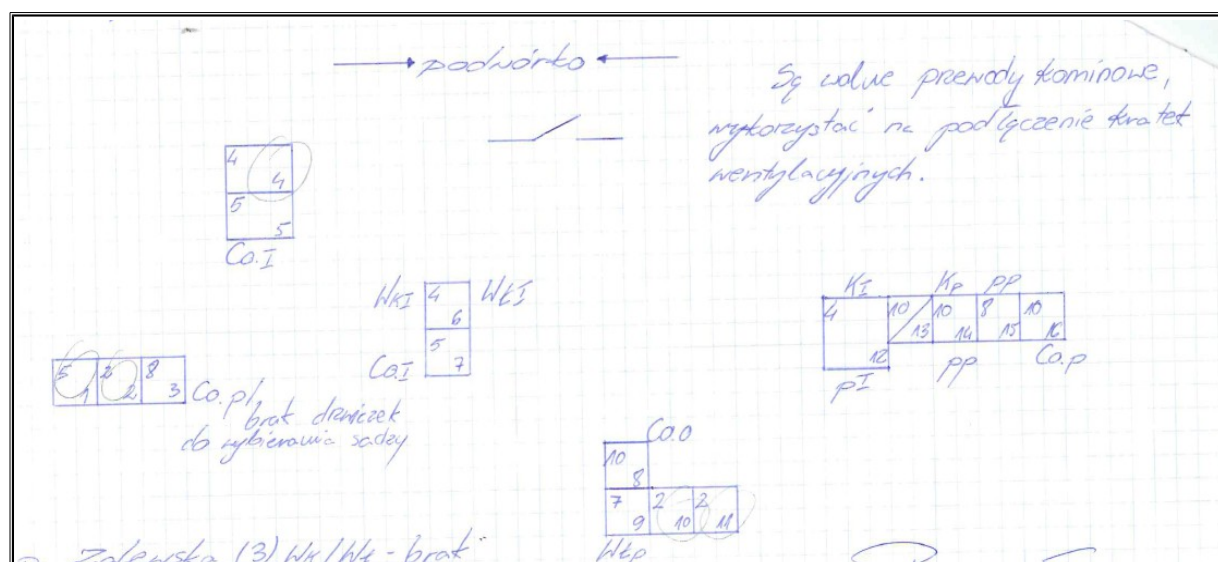 podwórko
Są wolne przewody kominowe,
wykorzystać na podłączenie kratek
wentylacyjnych.
4
4
5
5
Co.I
WKI 4 WŁI
6
5
Co.I 7
KI Kp pp
4 10 10 8 10
12 13 14 15 16
pI pp Co.p
5 2 8
1 2 3 Co.p
brak drzwiczek
do wybierania sadzy
Co.o
10
8
7 2 2
9 10 11
WŁp
Zalewska (3) WK/WŁ - brak